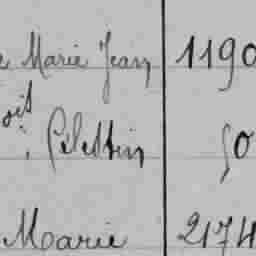 e Marie Jean 1190
oit
, Célestin 50
Marie 2174